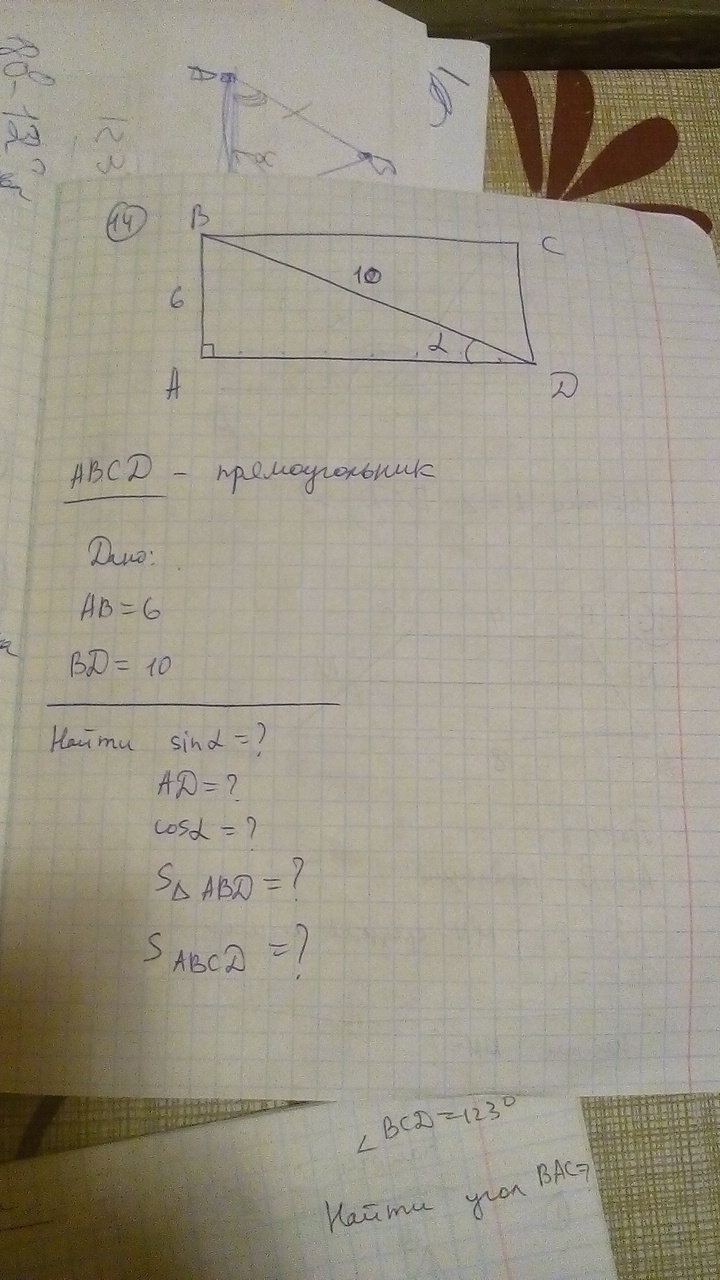 D
14
B
C
6
10
α
A
D
ABCD - прямоугольник
Дано:
AB = 6
BD = 10
Найти sinα = ?
AD = ?
cosα = ?
S△ ABD = ?
S ABCD = ?
∠ BCD = 123°
Найти угол BAC = ?